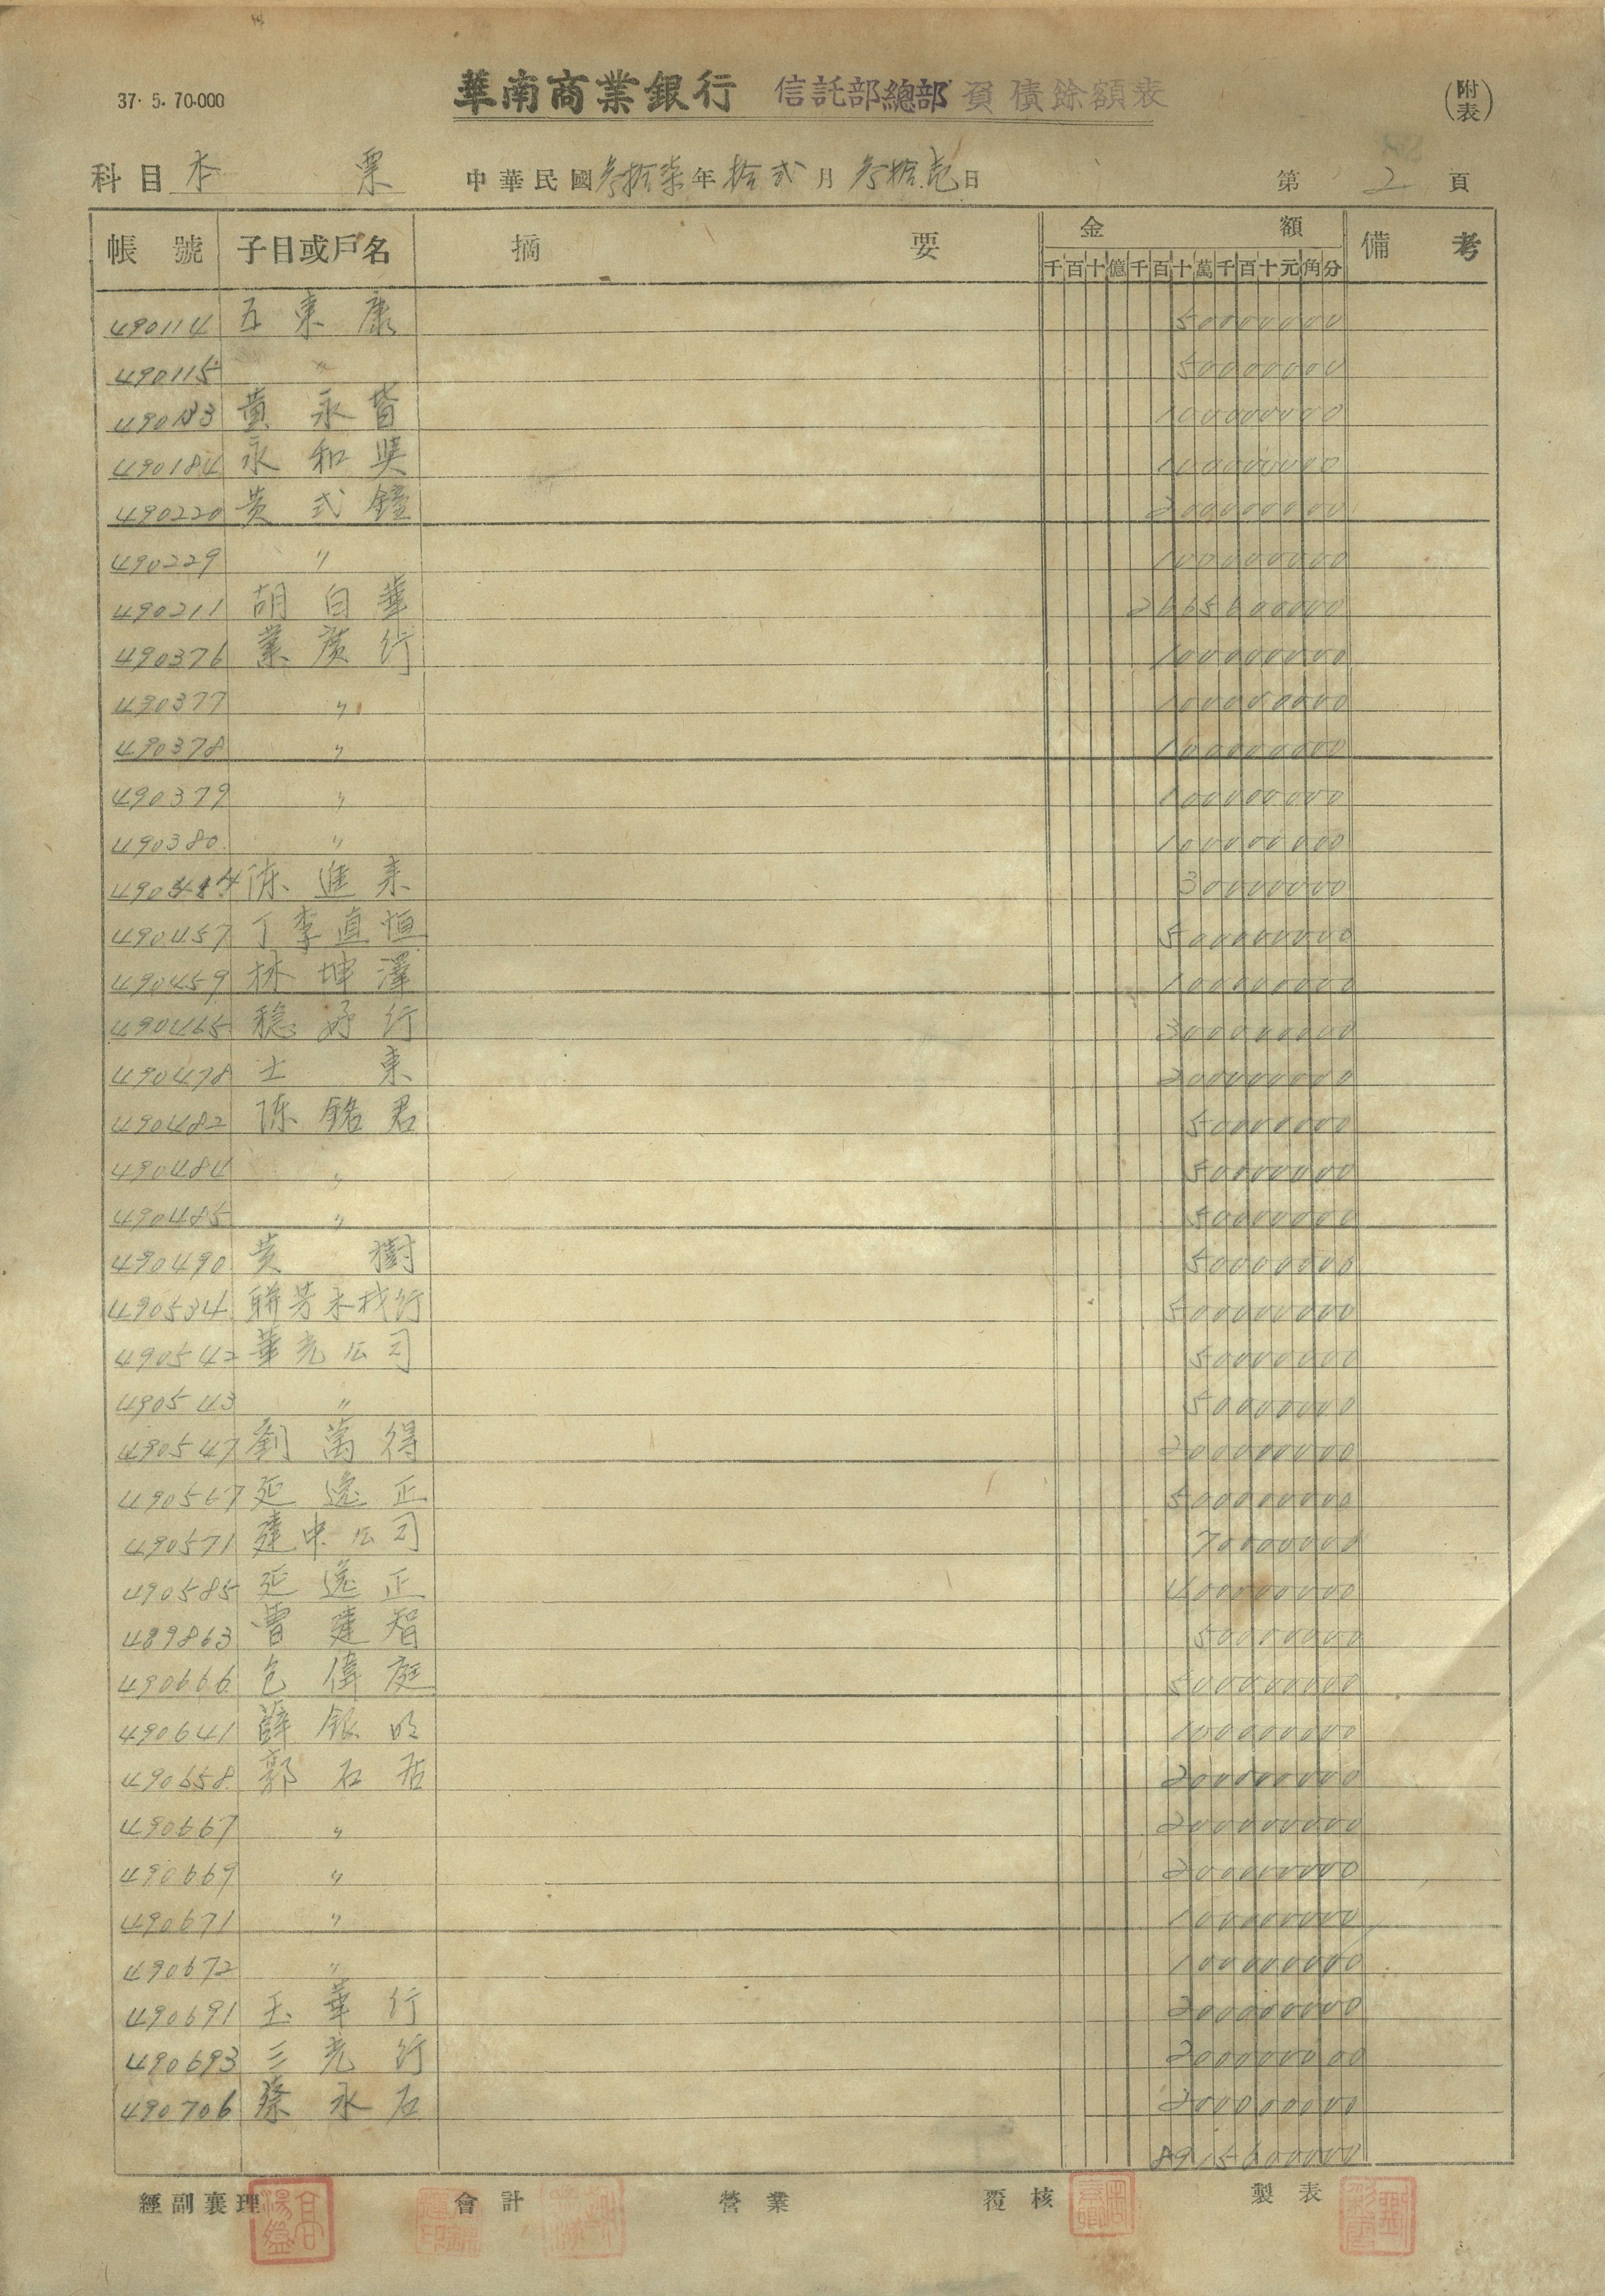 37. 5. 70.000
華南商業銀行 信託部總部 負債餘額表 (附表)
科目 本票 中華民國叁拾柒年拾弍月叁拾壱日 第 2 頁
帳號 子目或戶名 摘要 金額 備考
千百十億千百十萬千百十元角分
490114 五東康 50000000
490115 〃 50000000
490183 黄永 100000000
490184 永和興 100000000
490220 黄式鐘 200000000
490229 〃 100000000
490211 胡白華 2665600000
490376 業廣行 100000000
490377 〃 100000000
490378 〃 100000000
490379 〃 100000000
490380 〃 100000000
陈進来 30000000
490457 丁李直恒 500000000
490459 林坤澤 100000000
490465 稳好行 300000000
490478 士東 200000000
490482 陈銘君 50000000
490484 〃 50000000
490485 〃 50000000
490490 黄樹 50000000
490534 聯芳木材行 500000000
490542 華光公司 50000000
490543 〃 50000000
490547 劉萬得 200000000
490567 延逸正 500000000
490571 建中公司 70000000
490585 延逸正 400000000
489863 曹建智 50000000
490666 包偉庭 500000000
490641 薛銀旺 100000000
490658 郭石 200000000
490667 〃 200000000
490669 〃 200000000
490671 〃 100000000
490672 〃 100000000
490691 玉華行 200000000
490693 三光行 200000000
490706 蔡永石 200000000
8915600000
經副襄理 會計 營業 覆核 製表